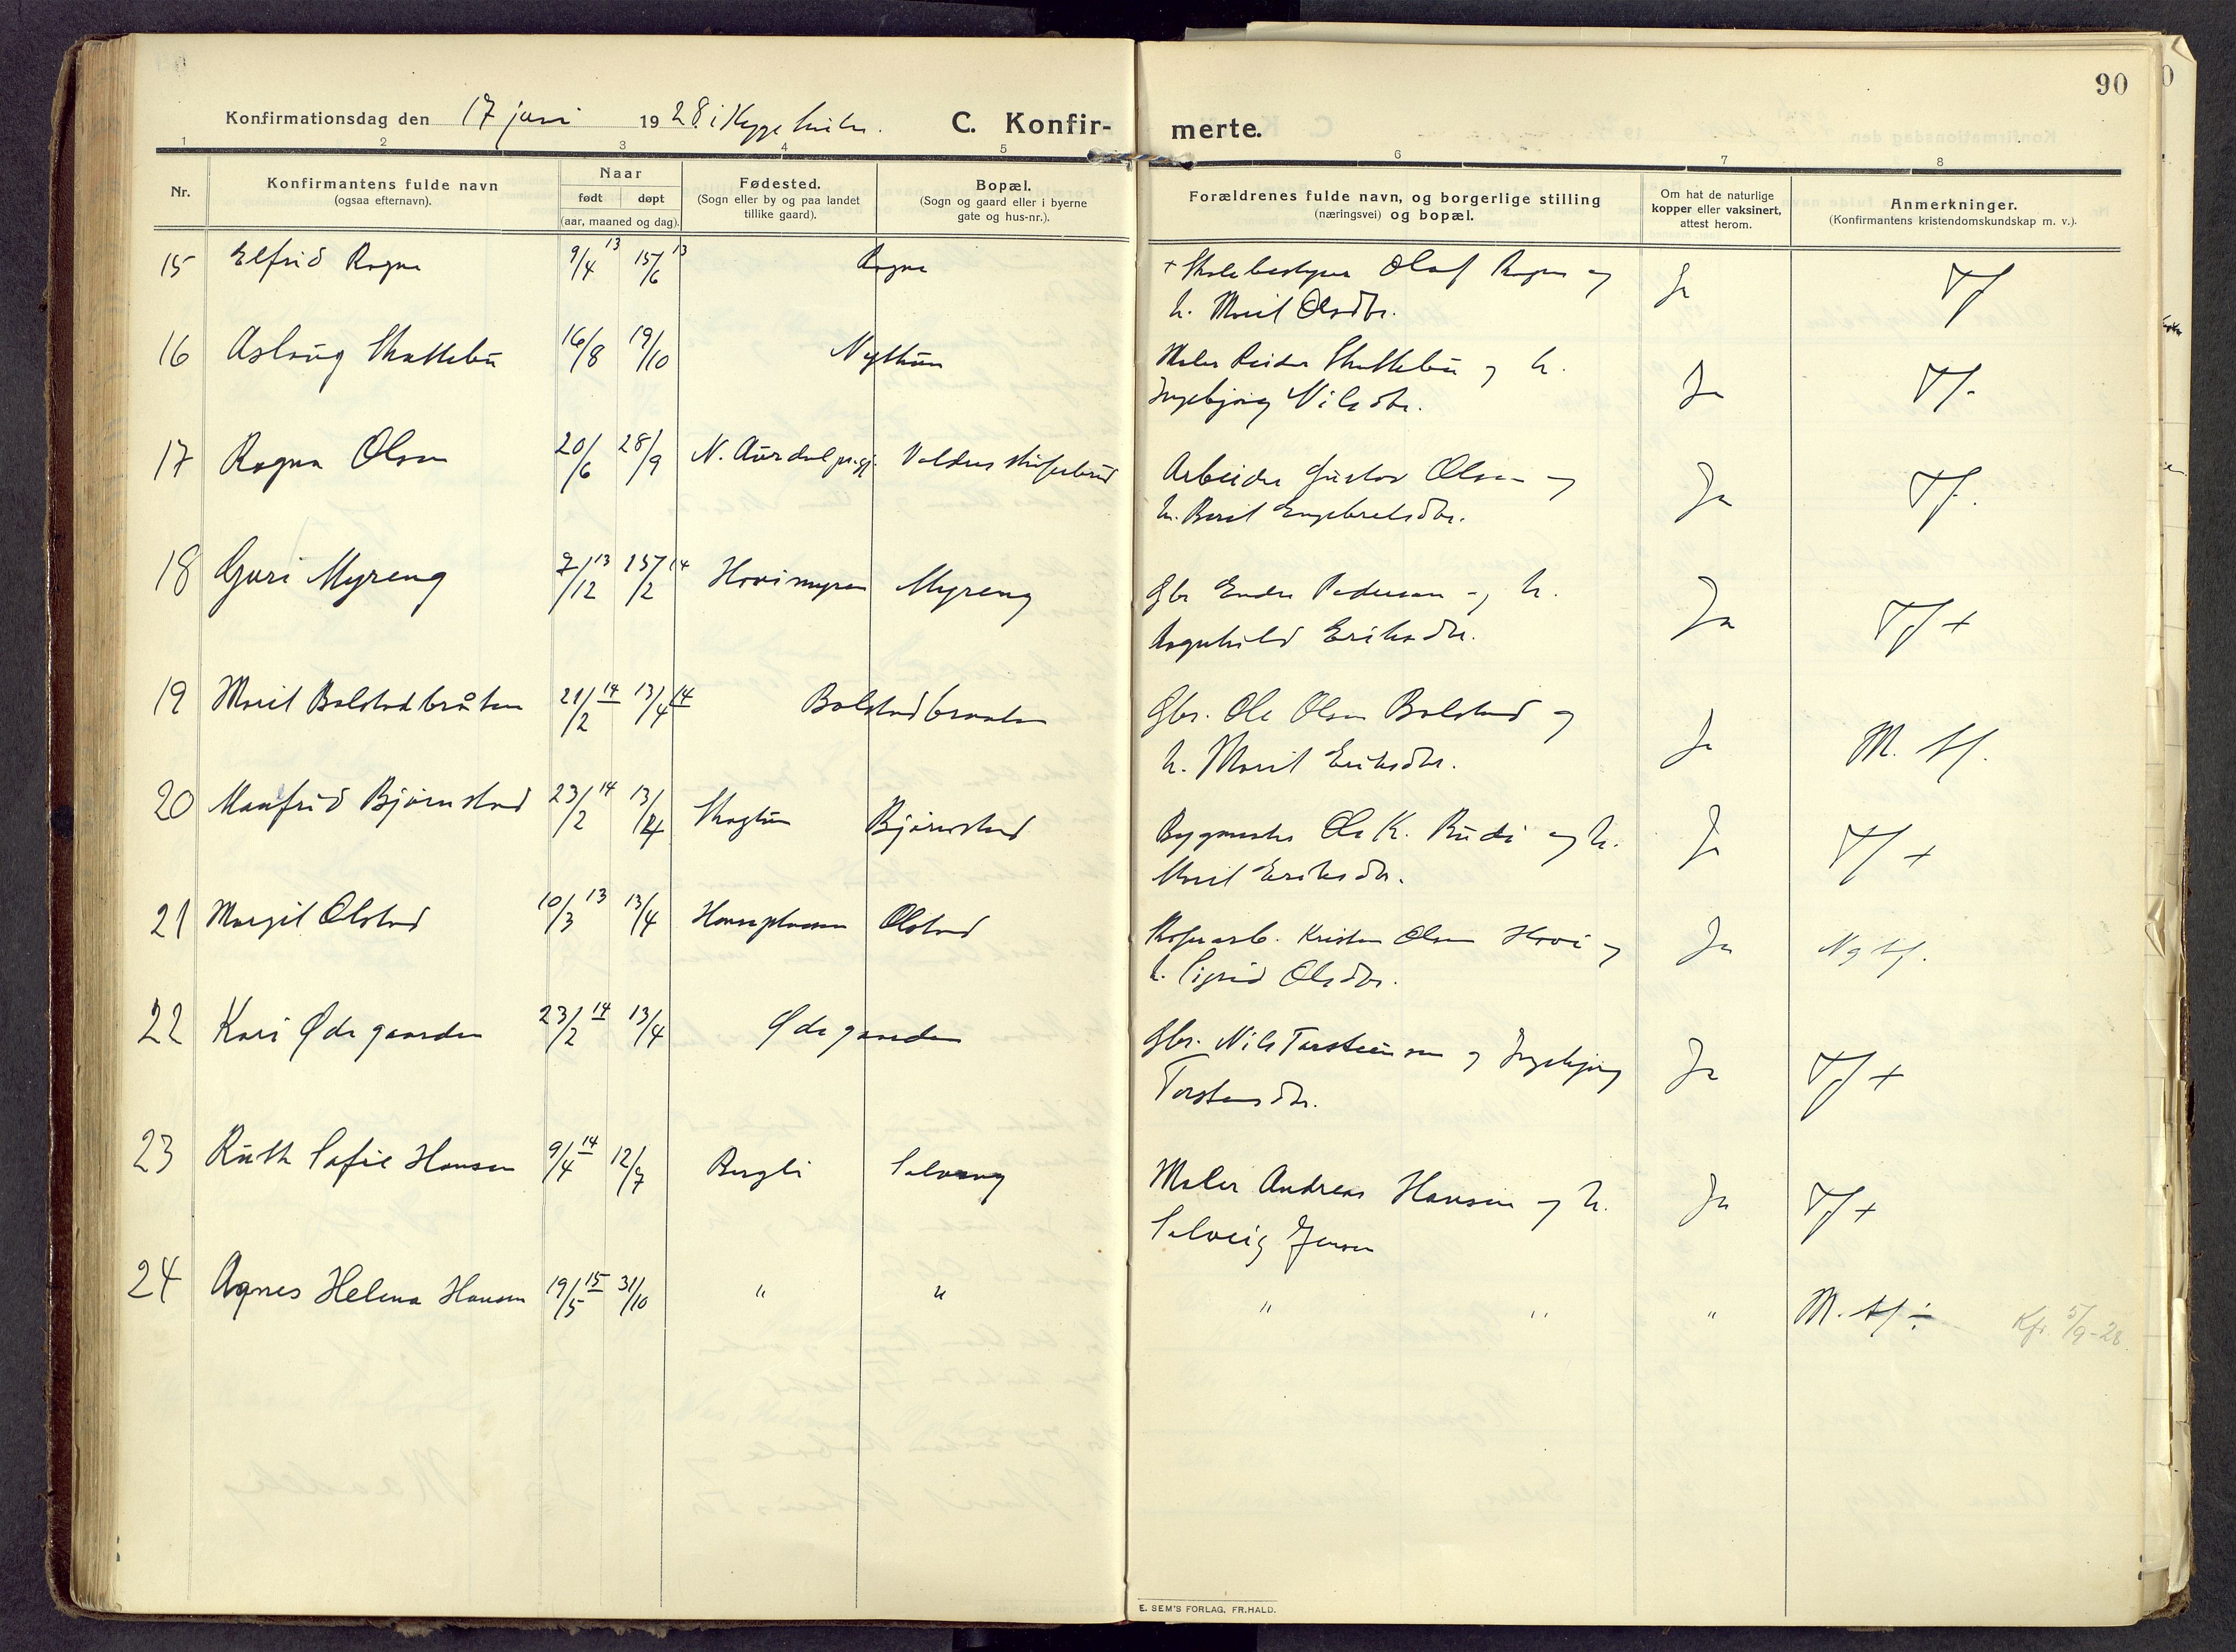 90
Konfirmationsdag den 17 juni 1928 i Hegge kirke. C. Konfir- merte.
1 2 3 4 5 6 7 8
Nr.
Konfirmantens fulde navn
(ogsaa efternavn).
Naar
født døpt
(aar, maaned og dag).
Fødested.
(Sogn eller by og paa landet
tillike gaard).
Bopæl.
(Sogn og gaard eller i byerne
gate og hus-nr.).
Forældrenes fulde navn, og borgerlige stilling
(næringsvei) og bopæl.
Om hat de naturlige
kopper eller vaksinert,
attest herom.
Anmerkninger.
(Konfirmantens kristendomskundskap m. v.).
15 Elfrid Rogne 9/4 13 15/6 13 Rogne + Skolebestyrer Olaf Rogne og Ja Tf
h. Marit Olsdtr.
16 Aslaug Skattebu 16/8 19/10 Nythun Maler Reidar Skattebu og h. Ja Tf.
Ingebjørg Nilsdtr.
17 Ragna Olsen 20/6 28/9 N. Aurdal pr.gj. Valdres skiferbrud Arbeider Gustav Olsen og Ja Tf.
h. Berit Engebretsdtr.
18 Guri Myreng 7/12 13 15/2 14 Hovimyren Myreng Gbr Endre Pedersen og h. Ja Tf +
Ragnhild Eriksdtr.
19 Marit Bolstadbråten 21/2 14 13/4 14 Bolstadbraaten Gbr. Ole Olsen Bolstad og Ja M. tf.
h. Marit Eriksdtr.
20 Manfrid Bjørnstad 23/2 14 13/4 Skogtun Bjørnstad Bygmester Ole K. Rudi og h. Ja Tf +
Marit Eriksdtr.
21 Margit Olstad 10/3 13 13/4 Olstad Skiferarb. Kristen Olsen Hovi og Ja Ng tf.
h. Sigrid Olsdtr.
22 Kari Ødegaarden 23/2 14 13/4 Ødegaarden Gbr. Nils Torsteinsen og Ingebjørg Ja Tf +
Torstensdtr.
23 Ruth Sofie Hansen 9/4 14 12/7 Bergli Solvang Maler Andreas Hansen og h. Ja Tf +
Solveig Jensen
24 Agnes Helena Hansen 19/5 15 31/10 " " " " " M. tf ÷ Kfr. 5/9-28
E. SEM'S FORLAG, FR.HALD.